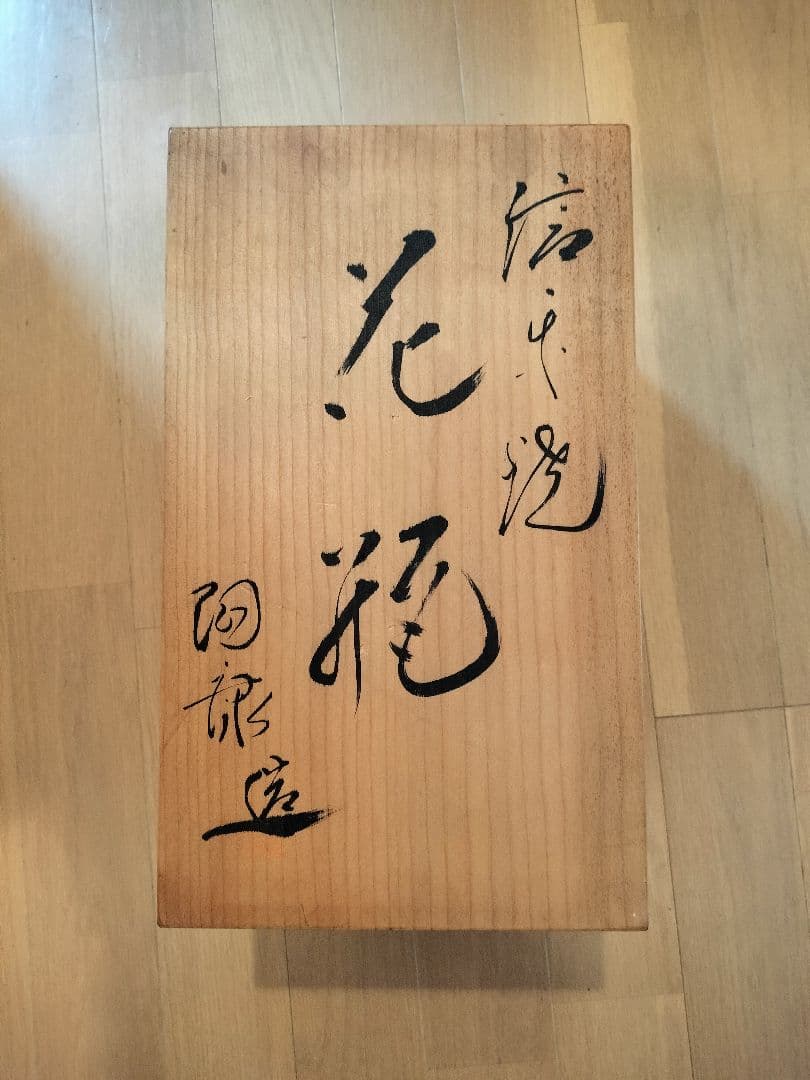 信楽焼
花瓶
陶造